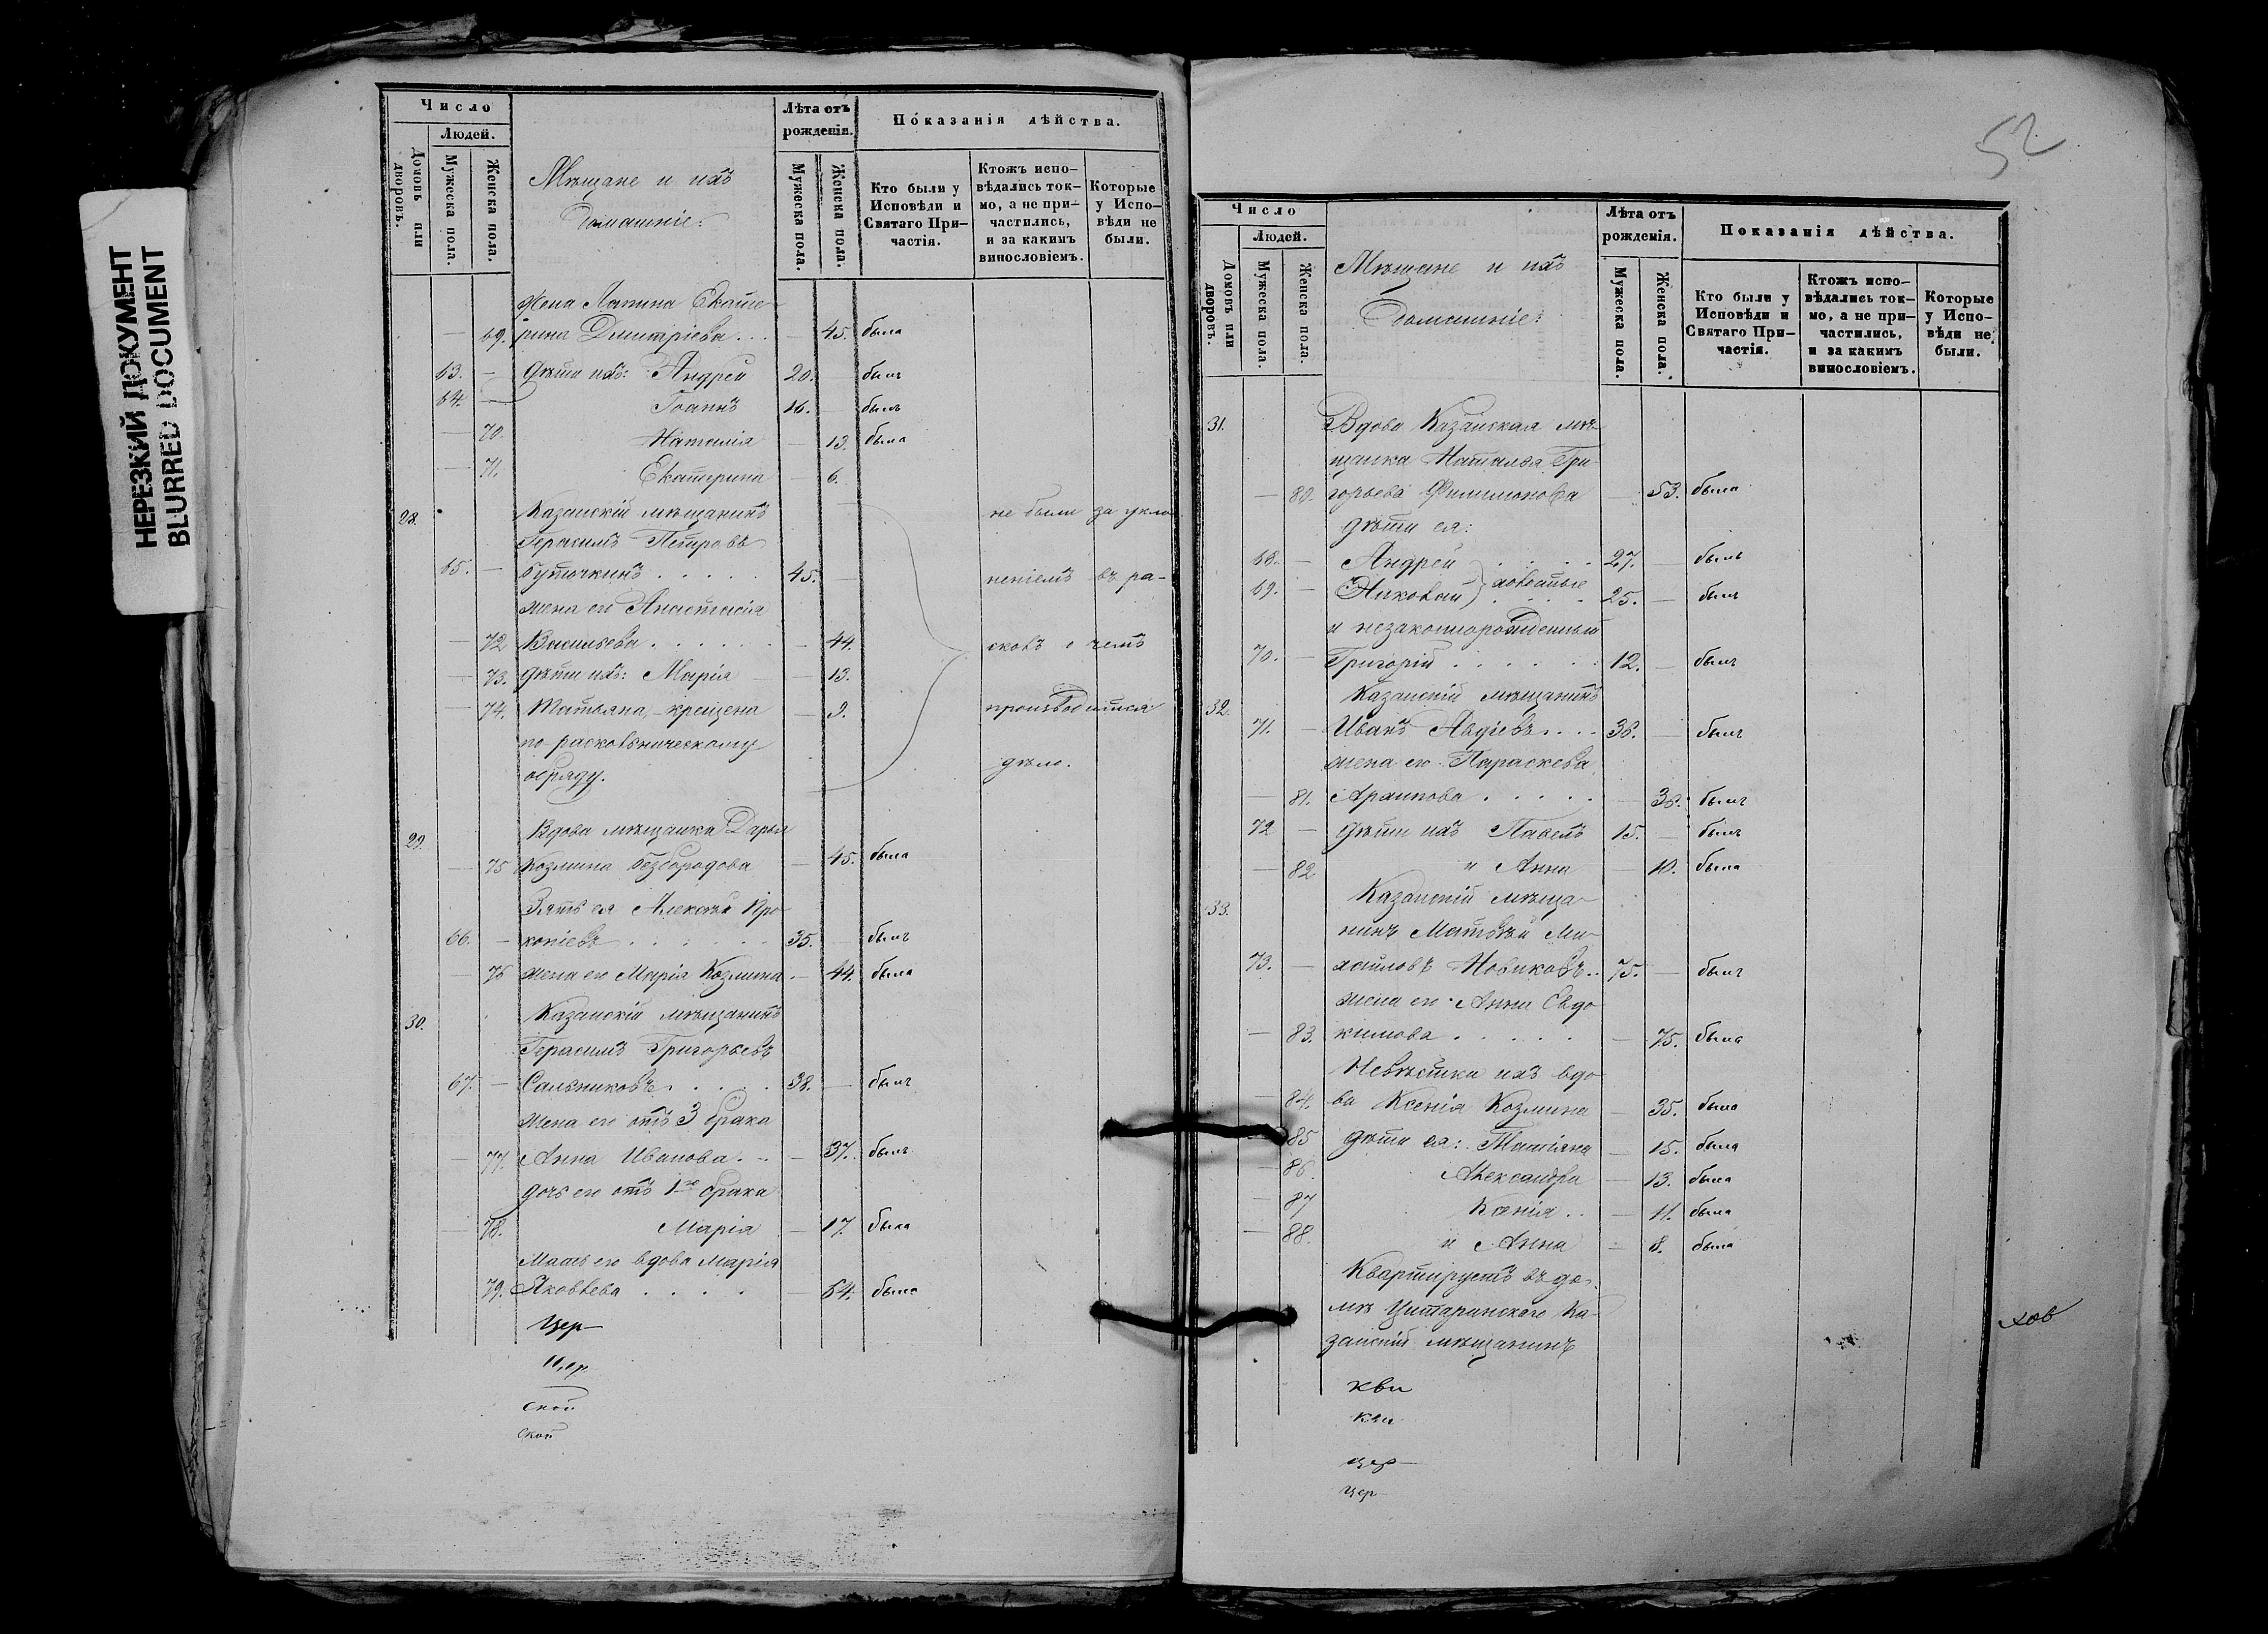 НЕРЕЗКИЙ ДОКУМЕНТ
BLURRED DOCUMENT
Число
Людей.
Домовъ или дворовъ.
Мужеска пола.
Женска пола.
Мѣщане и ихъ
Домашніе:
Лѣта отъ рожденія.
Мужеска пола.
Женска пола.
Показанія дѣйства.
Кто были у Исповѣди и Святаго Причастія.
Ктожъ исповѣдались токмо, а не причастились, и за какимъ винословіемъ.
Которые у Исповѣди не были.
жена Лапина Екате-
— 69. рина Дмитріева... — 45. была
63. — Дѣти ихъ: Андрей 20. былъ
64. — Іоаннъ 16. — былъ
— 70. Наталія — 13. была
— 71. Екатерина — 6.
28. Казанскій мѣщанинъ не были за укло
Герасимъ Петровъ
65. — Буточкинъ..... 45. — неніемъ въ ра-
жена его Анастасія
— 72 Васильева...... — 44. сколъ о чемъ
— 73. Дѣти ихъ: Марія — 13.
— 74. Татьяна, - крещена — 9. производится
по раскольническому
обряду. дѣло.
29. Вдова мѣщанка Дарья
— 75 Козмина Безбородова — 45. была
Зять ея Алексѣй Про-
66. — копіевъ...... 35. — былъ
— 76 жена его Марія Козмина. — 44. была
30. Казанскій мѣщанинъ
Герасимъ Григорьевъ
67. — Сальниковъ.... 38. — былъ
Жена его отъ 3 брака
— 77. Анна Иванова... — 37. былъ
дочь его отъ 1го брака
— 78. Марія — 17. была
Мать его вдова Марія
79. Яковлева.... — 64. была
Цер—
Цер.
ской
ской
52
Число
Людей.
Домовъ или дворовъ.
Мужеска пола.
Женска пола.
Мѣщане и ихъ
Домашніе:
Лѣта отъ рожденія.
Мужеска пола.
Женска пола.
Показанія дѣйства.
Кто были у Исповѣди и Святаго Причастія.
Ктожъ исповѣдались токмо, а не причастились, и за какимъ винословіемъ.
Которые у Исповѣди не были.
31. Вдова Казанская мѣ-
щанка Наталья Гри-
— 80. горьева Филимонова — 53. была
Дѣти ея:
68. — Андрей.... 27. — былъ
69. — Николай} холостые.... 25. — былъ
и незаконнорожденный
70. — Григорій...... 12. — былъ
32. Казанскій мѣщанинъ
71. — Иванъ Авдіевъ... 38. — былъ
жена его Параскева
— 81. Архипова..... — 38. былъ
72 — Дѣти ихъ Павелъ 15. — былъ
— 82 и Анна — 10. была
33. Казанскій мѣща-
нинъ Матвѣй Ми-
73. — хайловъ Новиковъ.. 75. — былъ
жена его Анна Евдо
— 83. кимова..... — 75. была
Невѣстка ихъ вдо
— 84. ва Ксенія Козмина — 35. была
85 Дѣти ея: Татіяна — 15. была
— 86. Александра — 13. была
— 87 Ксенія.. — 11. была
— 88. и Анна — 8. была
Квартируетъ въ до-
мѣ Ка-
занскій мѣщанинъ
хов
кви
кви
цер—
цер